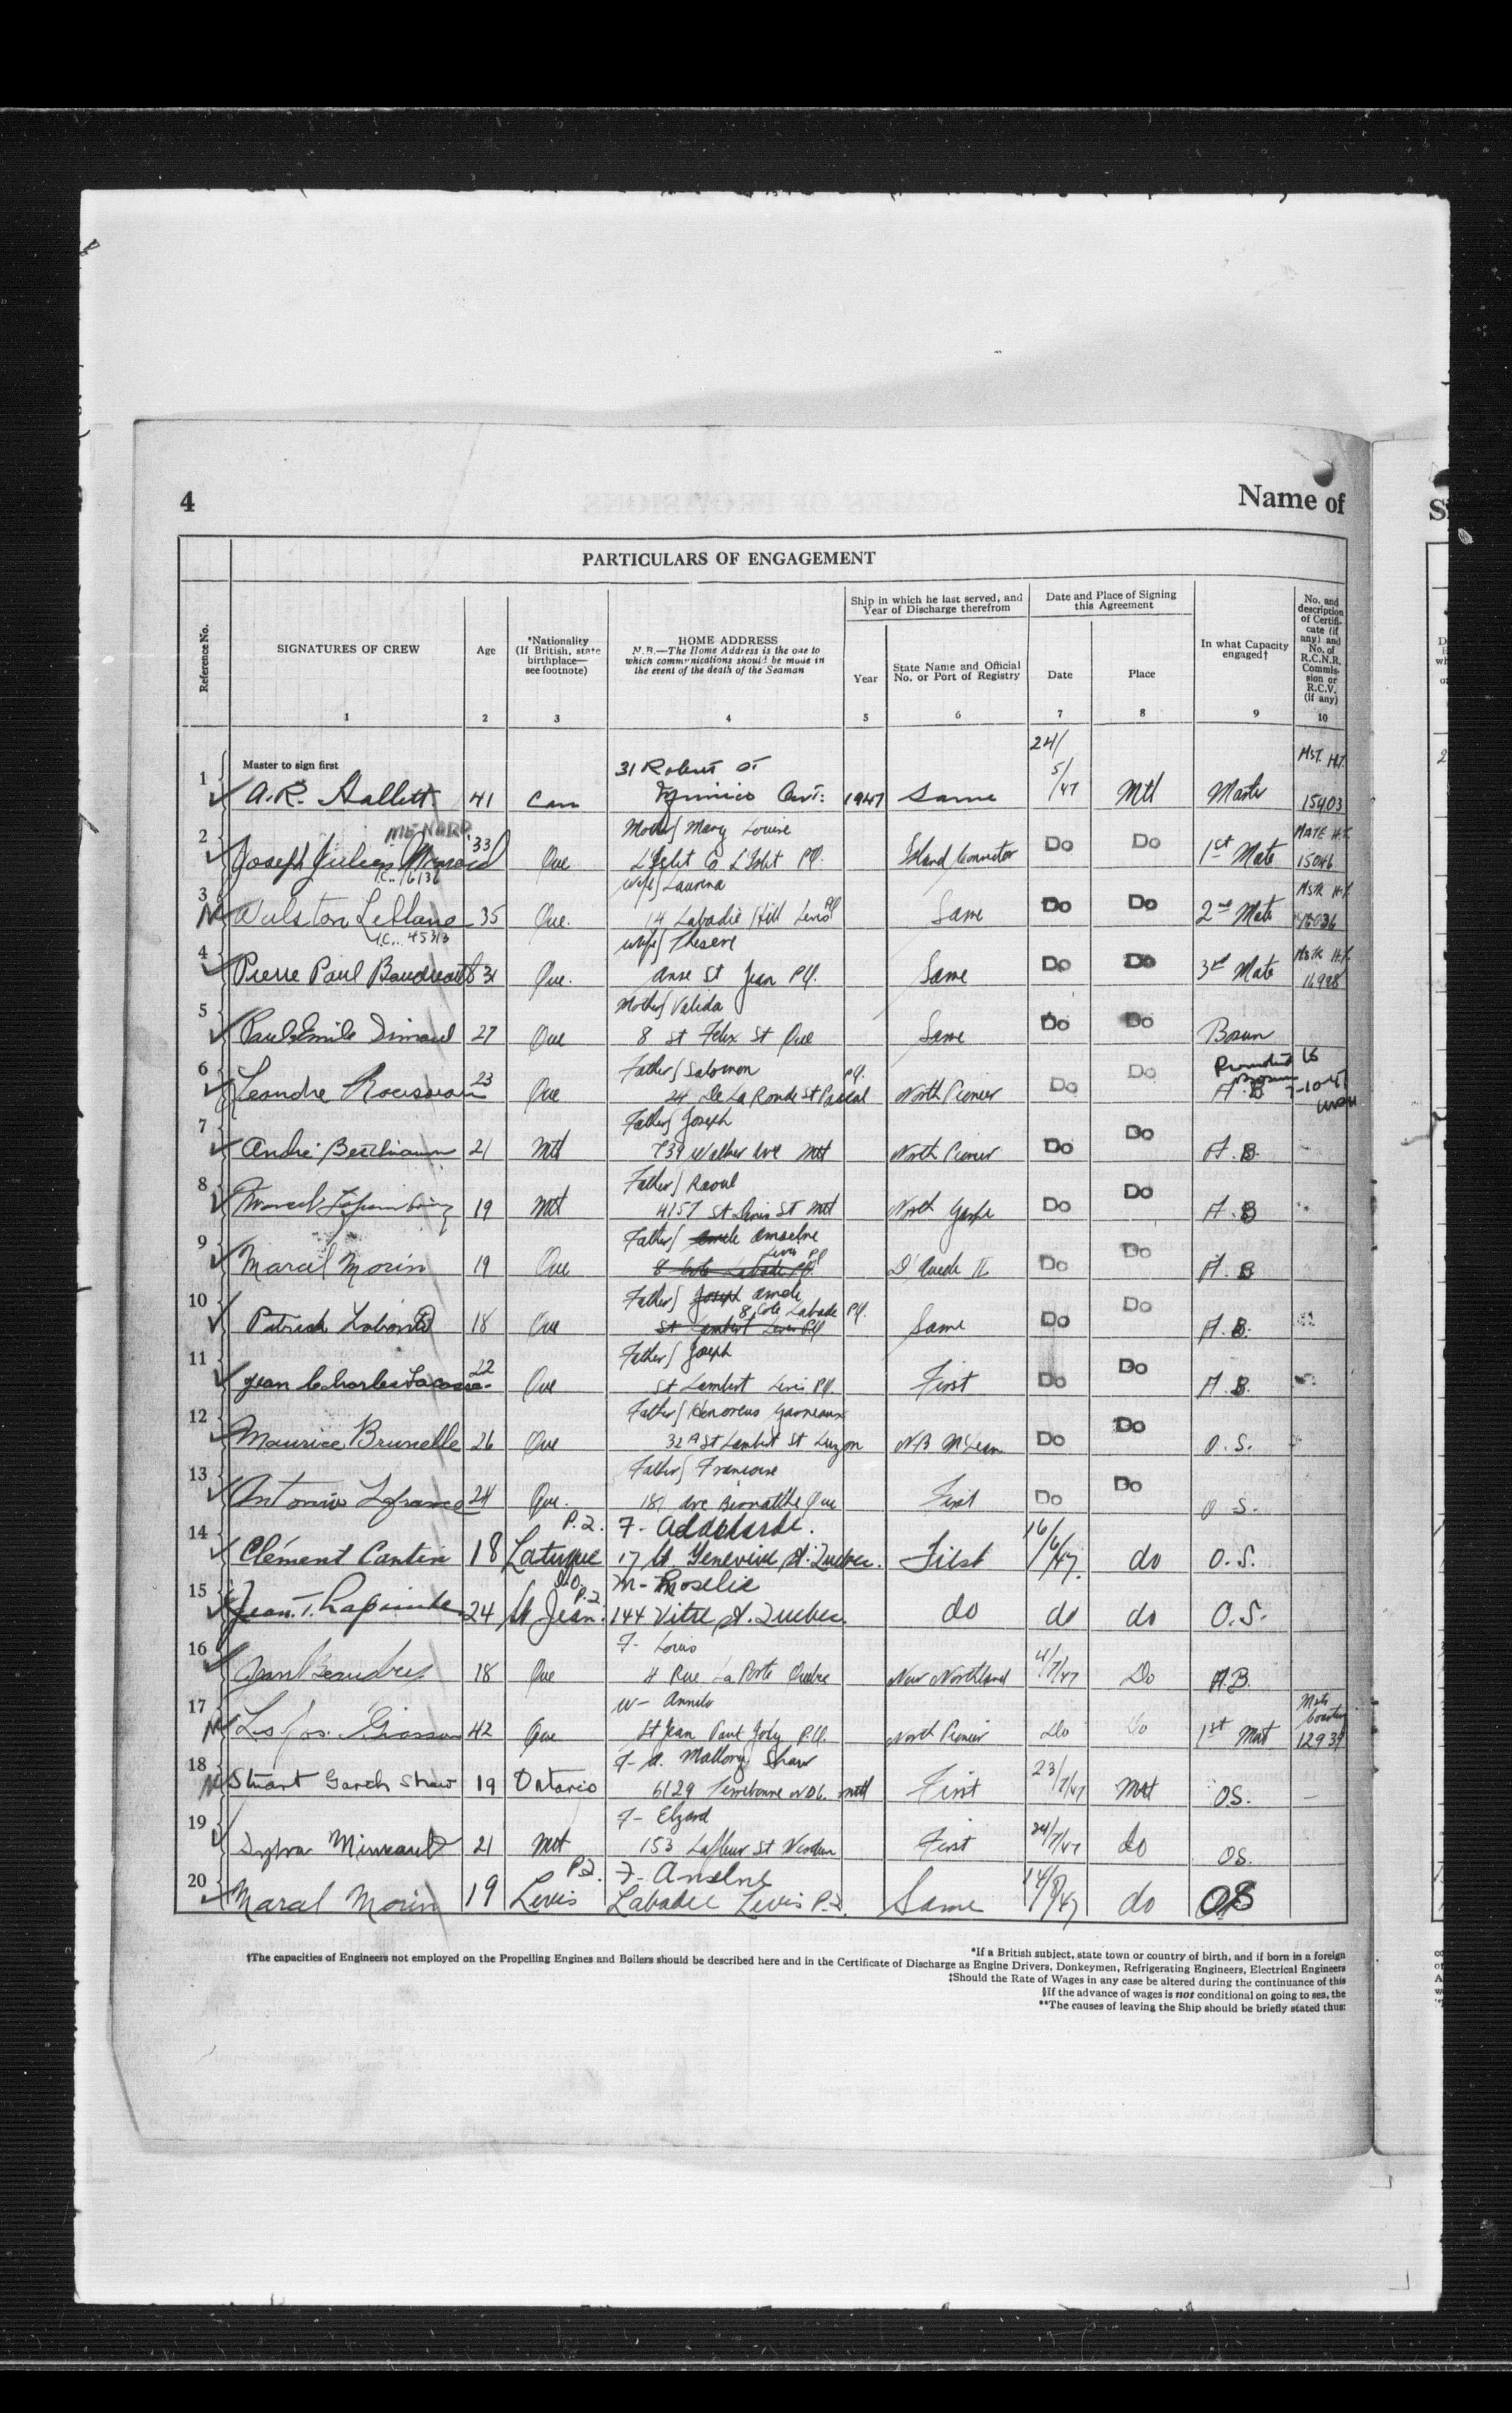 4
Name of
PARTICULARS OF ENGAGEMENT
Reference No.
SIGNATURES OF CREW
Age
*Nationality
(If British, state
birthplace—
see footnote)
HOME ADDRESS
N.B.—The Home Address is the one to
which communications should be made in
the event of the death of the Seaman
Ship in which he last served, and
Year of Discharge therefrom
Year
State Name and Official
No. or Port of Registry
Date and Place of Signing
this Agreement
Date
Place
In what Capacity
engaged†
No. and
description
of Certifi-
cate (if
any) and
No. of
R.C.N.R.
Commis-
sion or
R.C.V.
(if any)
1 2 3 4 5 6 7 8 9 10
Master to sign first
31 Robert St
24/5/47
Mst. H.T.
1 A.R. Hallett 41 Can Ont: 1947 Same Mtl Master 15403
MENARD
Mother/ Mary Louise
MATE H.T.
2 Joseph Julien Menard 33 Que L'Islet Co L'Islet P.Q. Island Connector Do Do 1st Mate 15046
I.C. 16136
Wife/ Laurena
Mstr H.T.
3 Wulston Leblanc 35 Que. 14 Labadie Hill Levis PQ Same Do Do 2nd Mate
I.C. 45313
Wife/ Therese
Mstr H.T.
4 Pierre Paul Boudreault 31 Que. Anse St Jean P.Q. Same Do Do 3rd Mate 16998
Mother/ Valida
5 Paul Emile Simard 27 Que 8 St Felix St Que Same Do Do Bosun
Father/ Salomon P.Q.
Promoted to Bosun 7-10-47
6 Leandre 23 Que 24 De La Ronde St Pascal North Pioneer Do Do A.B
Father/ Joseph
7 André Berthiaume 21 Mtl 739 Walker Ave Mtl North Pioneer Do Do A.B.
Father/ Raoul
8 Marcel 19 Mtl 4157 St Denis St Mtl North Gaspe Do Do A.B
Father/ Amselne
Levis PQ
9 Marcel Morin 19 Que 8 Cote Labadie P.Q. D'Auede II Do Do A.B
Father/ Joseph Amele
8 Cote Labade P.Q.
10 Patrick Labonté 18 Que St Lambert Levis P.Q Same Do Do A.B.
Father/ Joseph
11 Jean Charles Lacasse 22 Que St Lambert Levis P.Q. First Do Do A.B.
Father/ Honoreus Garneaux
12 Maurice Brunelle 26 Que 32A St Lambert St Luzon N.B. McLean Do Do O.S.
Father/ Francoise
13 Antonio Lafrance 24 Que. 181 Ave Que First Do Do O S.
P.Q. F- Adalbarde.
14 Clément Cantin 18 Latuque 17 St Genevieve St. Quebec. First 16/6/47. do O.S.
P.Q. M- Roselie
15 Jean. T. Lapointe 24 St Jean. 144 Vitre St. Quebec. do do do O.S.
F- Louis
16 Jean Beaudry 18 Que 4 Rue La Porte Quebec New Northland 4/7/47 Do A.B.
W- Annita
Mate Coasting
17 Ls Jos. Giasson 42 Que St Jean Paul Joly P.Q. North Pioneer Do Do 1st Mat 12939
F- A. Mallory Shaw
18 Stuart Garth Shaw 19 Ontario 6129 Terrebonne N.D.G. Mtl First 23/7/47 Mtl OS. —
F- Elzard
19 Sylva Mineault 21 Mtl 153 Lafleur St Verdun First 24/7/47 do OS.
P.Q. F- Anselne
20 Marcel Morin 19 Levis Labadee Levis P.Q. Same 14/8/47 do OS
*If a British subject, state town or country of birth, and if born in a foreign
†The capacities of Engineers not employed on the Propelling Engines and Boilers should be described here and in the Certificate of Discharge as Engine Drivers, Donkeymen, Refrigerating Engineers, Electrical Engineers
‡Should the Rate of Wages in any case be altered during the continuance of this
§If the advance of wages is not conditional on going to sea, the
**The causes of leaving the Ship should be briefly stated thus: